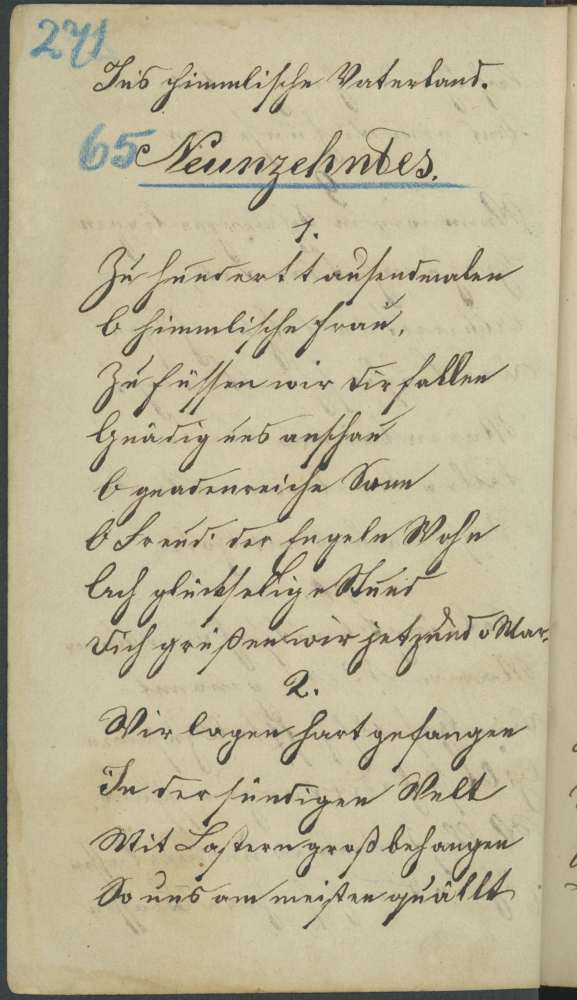 271
Ins himmlische Vaterland.
65 Neunzehndes.
1.
Zu hundert tausendmalen
O himmlische Frau,
Zu füssen wir dir fallen
Gnädig uns anschau
O gnadenreiche Sonn
O Freud der Engeln Wohn
Ach glückselige Stund
Dich grüßen wir jetzund o Mar.
2.
Wir lagen hart gefangen
In der sündigen Welt
Mit Lastern groß behangen
So uns am meisten quällt